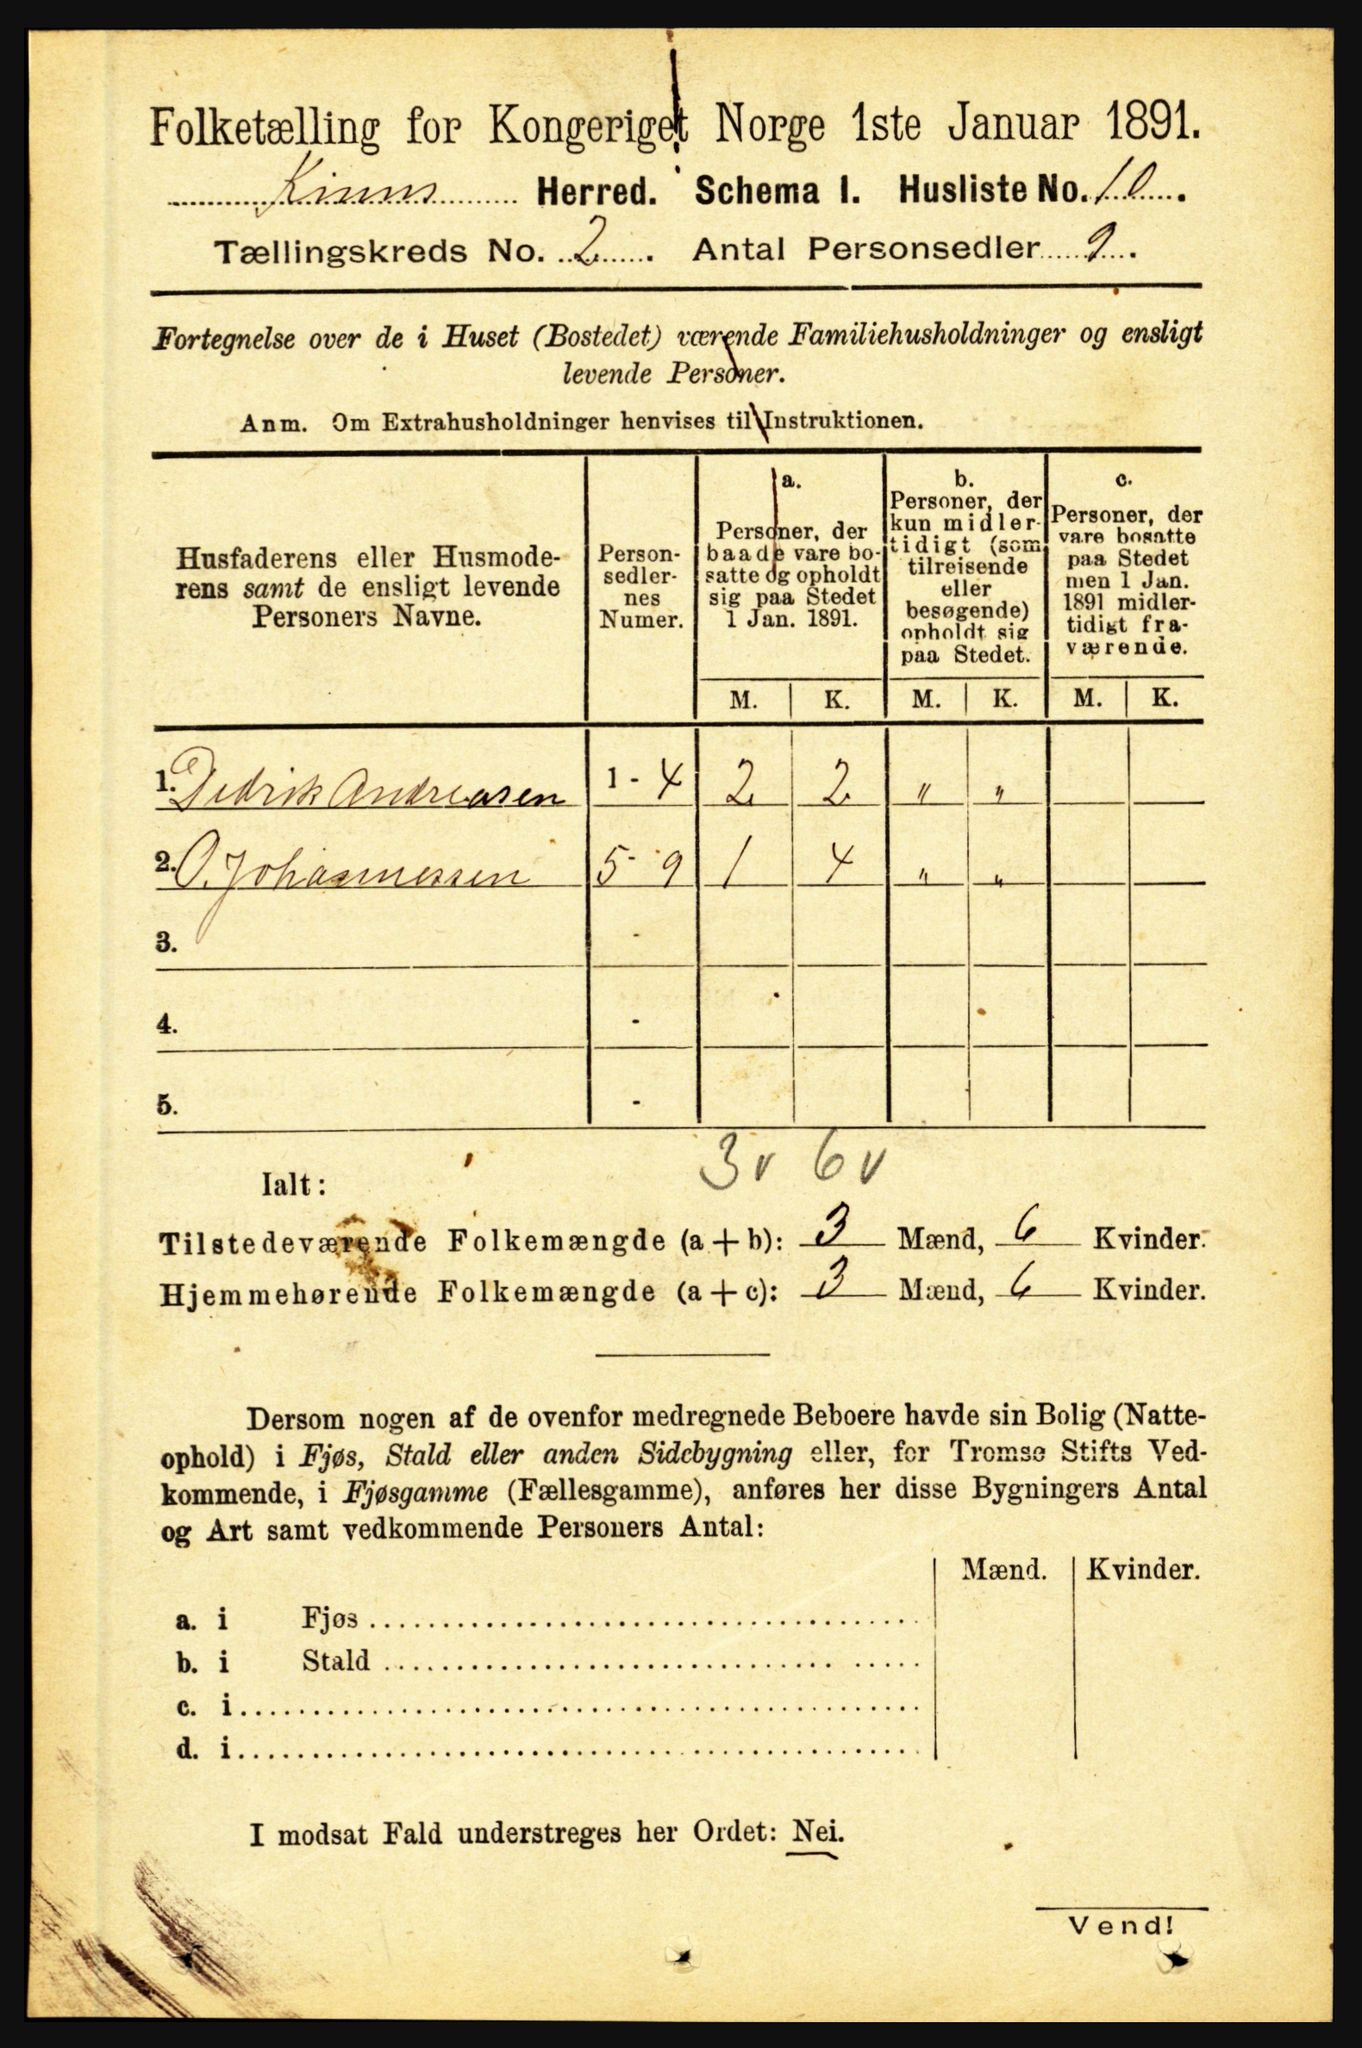 Folketælling for Kongeriget Norge 1ste Januar 1891.
Kinns Herred. Schema I. Husliste No. 10.
Tællingskreds No. 2. Antal Personsedler 9.
Fortegnelse over de i Huset (Bostedet) værende Familiehusholdninger og ensligt
levende Personer.
Anm. Om Extrahusholdninger henvises til Instruktionen.
Husfaderens eller Husmode-
rens samt de ensligt levende
Personers Navne.
Person-
sedler-
nes
Numer.
a.
Personer, der
baade vare bo-
satte og opholdt
sig paa Stedet
1 Jan. 1891.
b.
Personer, der
kun midler-
tidigt (som
tilreisende
eller
besøgende)
opholdt sig
paa Stedet.
c.
Personer, der
vare bosatte
paa Stedet
men 1 Jan.
1891 midler-
tidigt fra-
værende.
M. K. M. K. M. K.
1. Didrik Andreasen 1 - 4 2 2 " "
2. O. Johannessen 5 - 9 1 4 " "
3. -
4. -
5. -
3 v 6 v
Ialt:
Tilstedeværende Folkemængde (a + b): 3 Mænd, 6 Kvinder.
Hjemmehørende Folkemængde (a + c): 3 Mænd, 6 Kvinder.
Dersom nogen af de ovenfor medregnede Beboere havde sin Bolig (Natte-
ophold) i Fjøs, Stald eller anden Sidebygning eller, for Tromsø Stifts Ved-
kommende, i Fjøsgamme (Fællesgamme), anføres her disse Bygningers Antal
og Art samt vedkommende Personers Antal:
Mænd. Kvinder.
a. i Fjøs
b. i Stald
c. i
d. i
I modsat Fald understreges her Ordet: Nei.
Vend!